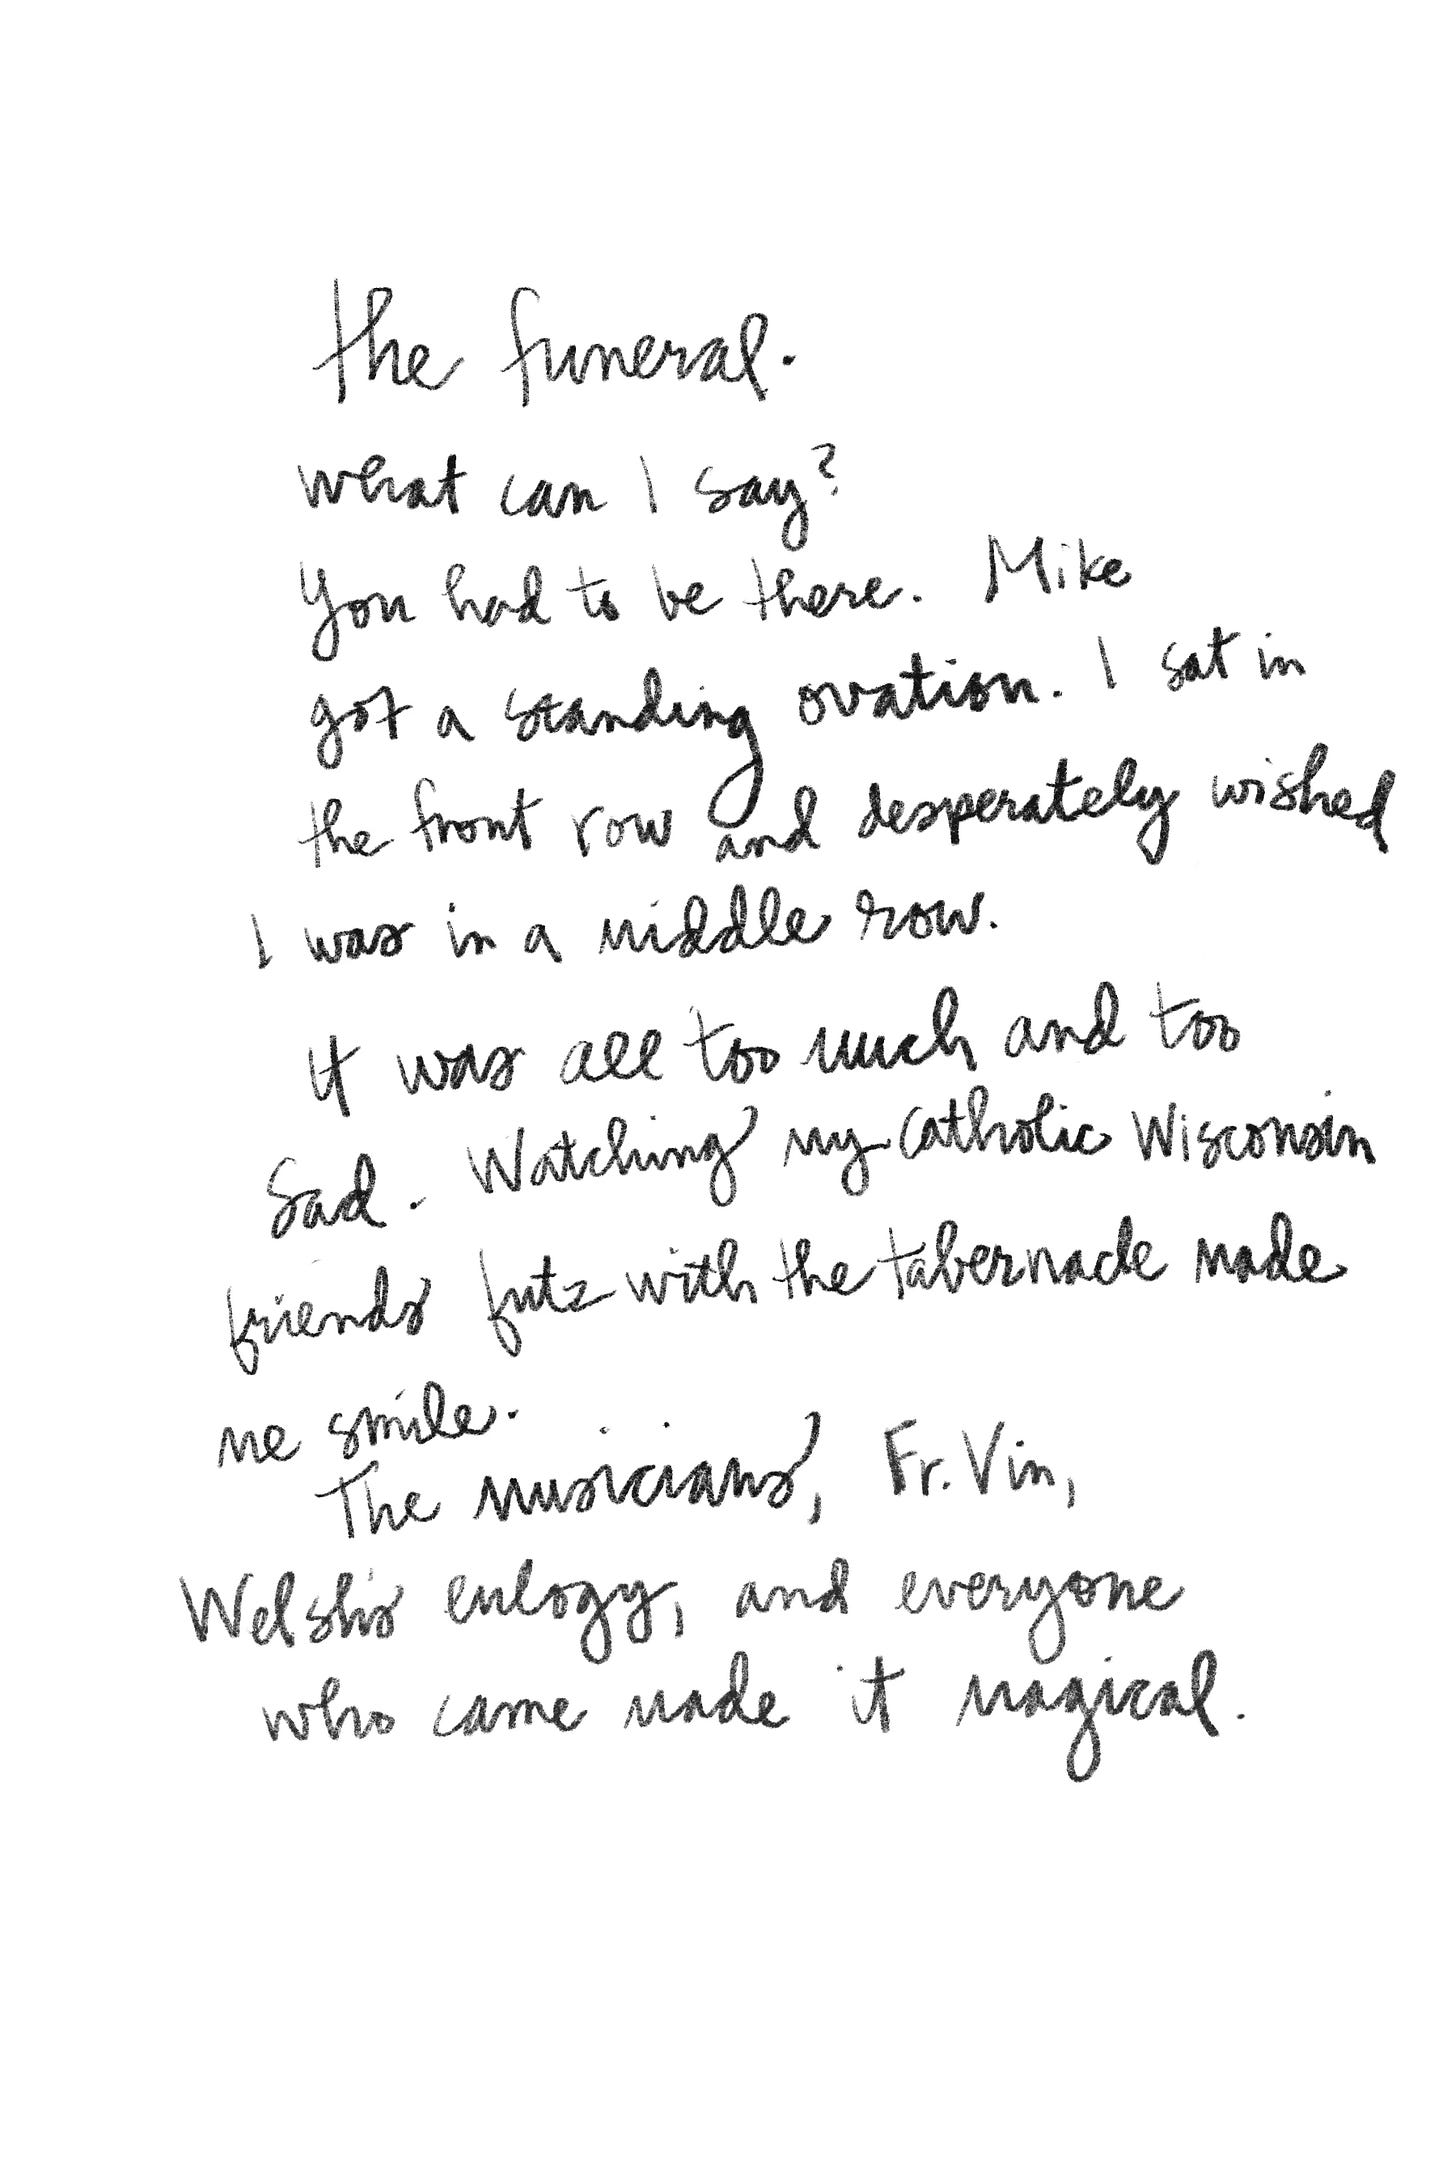 the funeral.
What can I say?
You had to be there. Mike
got a standing ovation. I sat in
the front row and desperately wished
I was in a middle row.
It was all too much and too
Sad. Watching my Catholic Wisconsin
friends futz with the tabernacle made
me smile.
The musicians, Fr. Vin,
Welsh's eulogy, and everyone
who came made it magical.